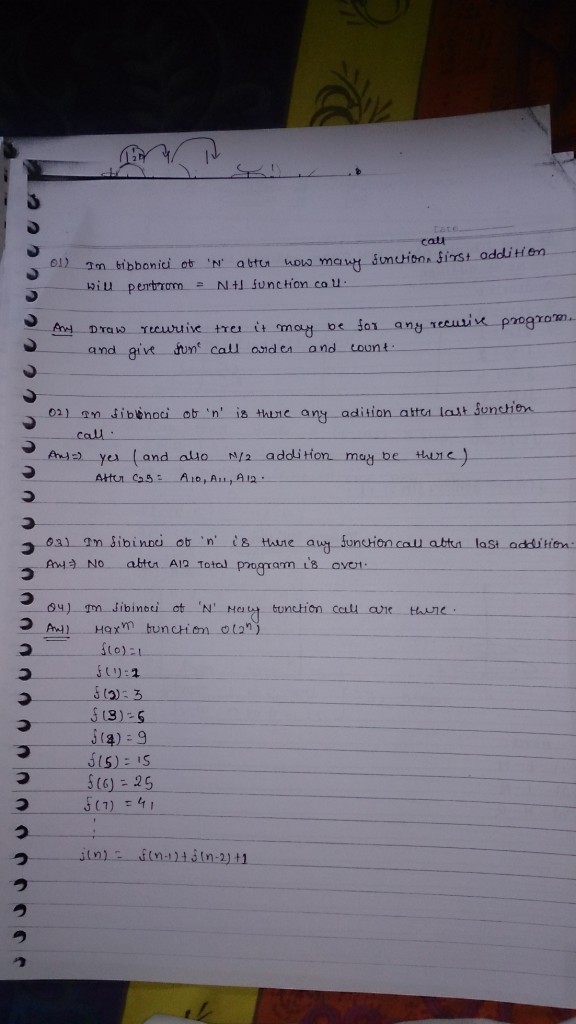 Date
call
Q1) Im bibbonici ob 'N' abter how many function, first addition
will perbrom = N+1 function call.
Ans Draw recursive tree it may be for any recursive program.
and give fun^c call order and count.
Q2) In fibinoci ob 'n' is there any adition atter last function
call.
Ans=> yes (and also N/2 addition may be there)
Atter C25 = A10, A11, A12.
Q3) In fibinoci ob 'n' is there any function call abter last addition.
Ans=> No abter A12 Total program is over.
Q4) Im fibinoci of 'N' Many bunction call are there.
Ans) Max^m bunction O(2^n)
f(0)=1
f(1)=1
f(2)=3
f(3)=5
f(4)=9
f(5)=15
f(6)=25
f(7)=41
f(n) = f(n-1)+f(n-2)+1